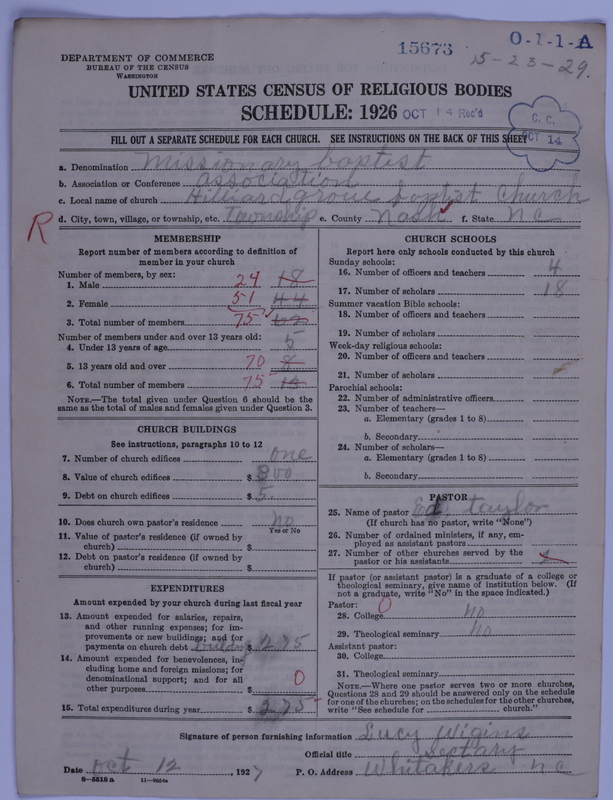 DEPARTMENT OF COMMERCE
BUREAU OF THE CENSUS
WASHINGTON
15673
O-1-1-A
15-23-29.
UNITED STATES CENSUS OF RELIGIOUS BODIES
SCHEDULE: 1926 OCT 14 Rec'd
C. C.
OCT 14
FILL OUT A SEPARATE SCHEDULE FOR EACH CHURCH. SEE INSTRUCTIONS ON THE BACK OF THIS SHEET
a. Denomination Missionary baptist
b. Association or Conference association
c. Local name of church Hilliard Grove baptist church
R
d. City, town, village, or township, etc. Township e. County Nash f. State NC
MEMBERSHIP
Report number of members according to definition of
member in your church
Number of members, by sex:
1. Male 24 18
2. Female 51 44
3. Total number of members 75 62
Number of members under and over 13 years old:
4. Under 13 years of age 5
5. 13 years old and over 70 8
6. Total number of members 75 14
NOTE.—The total given under Question 6 should be
same as the total of males and females given under Question 3.
CHURCH BUILDINGS
See instructions, paragraphs 10 to 12
7. Number of church edifices one
8. Value of church edifices $ 800
9. Debt on church edifices $ 5
10. Does church own pastor's residence no
Yes or No
11. Value of pastor's residence (if owned by
church) $
12. Debt on pastor's residence (if owned by
church) $
EXPENDITURES
Amount expended by your church during last fiscal year
13. Amount expended for salaries, repairs,
and other running expenses; for im-
provements or new buildings; and for
payments on church debt $ 275
14. Amount expended for benevolences, in-
cluding home and foreign missions; for
denominational support; and for all
other purposes $ 0
15. Total expenditures during year $ 275
CHURCH SCHOOLS
Report here only schools conducted by this church
Sunday schools:
16. Number of officers and teachers 4
17. Number of scholars 18
Summer vacation Bible schools:
18. Number of officers and teachers
19. Number of scholars
Week-day religious schools:
20. Number of officers and teachers
21. Number of scholars
Parochial schools:
22. Number of administrative officers
23. Number of teachers—
a. Elementary (grades 1 to 8)
b. Secondary
24. Number of scholars—
a. Elementary (grades 1 to 8)
b. Secondary
PASTOR
25. Name of pastor Ed taylor
(If church has no pastor, write "None")
26. Number of ordained ministers, if any, em-
ployed as assistant pastors
27. Number of other churches served by the
pastor or his assistants
If pastor (or assistant pastor) is a graduate of a college or
theological seminary, give name of institution below. (If
not a graduate, write "No" in the space indicated.)
Pastor: 0
28. College no
29. Theological seminary no
Assistant pastor:
30. College
31. Theological seminary
NOTE.—Where one pastor serves two or more churches,
Questions 28 and 29 should be answered only on the schedule
for one of the churches; on the schedules for the other churches,
write "See schedule for church."
Signature of person furnishing information Lucy Wigins
Official title Sectary
Date Oct 12, 1927 P. O. Address Whitakers nc
6—5518 a 11—9054a